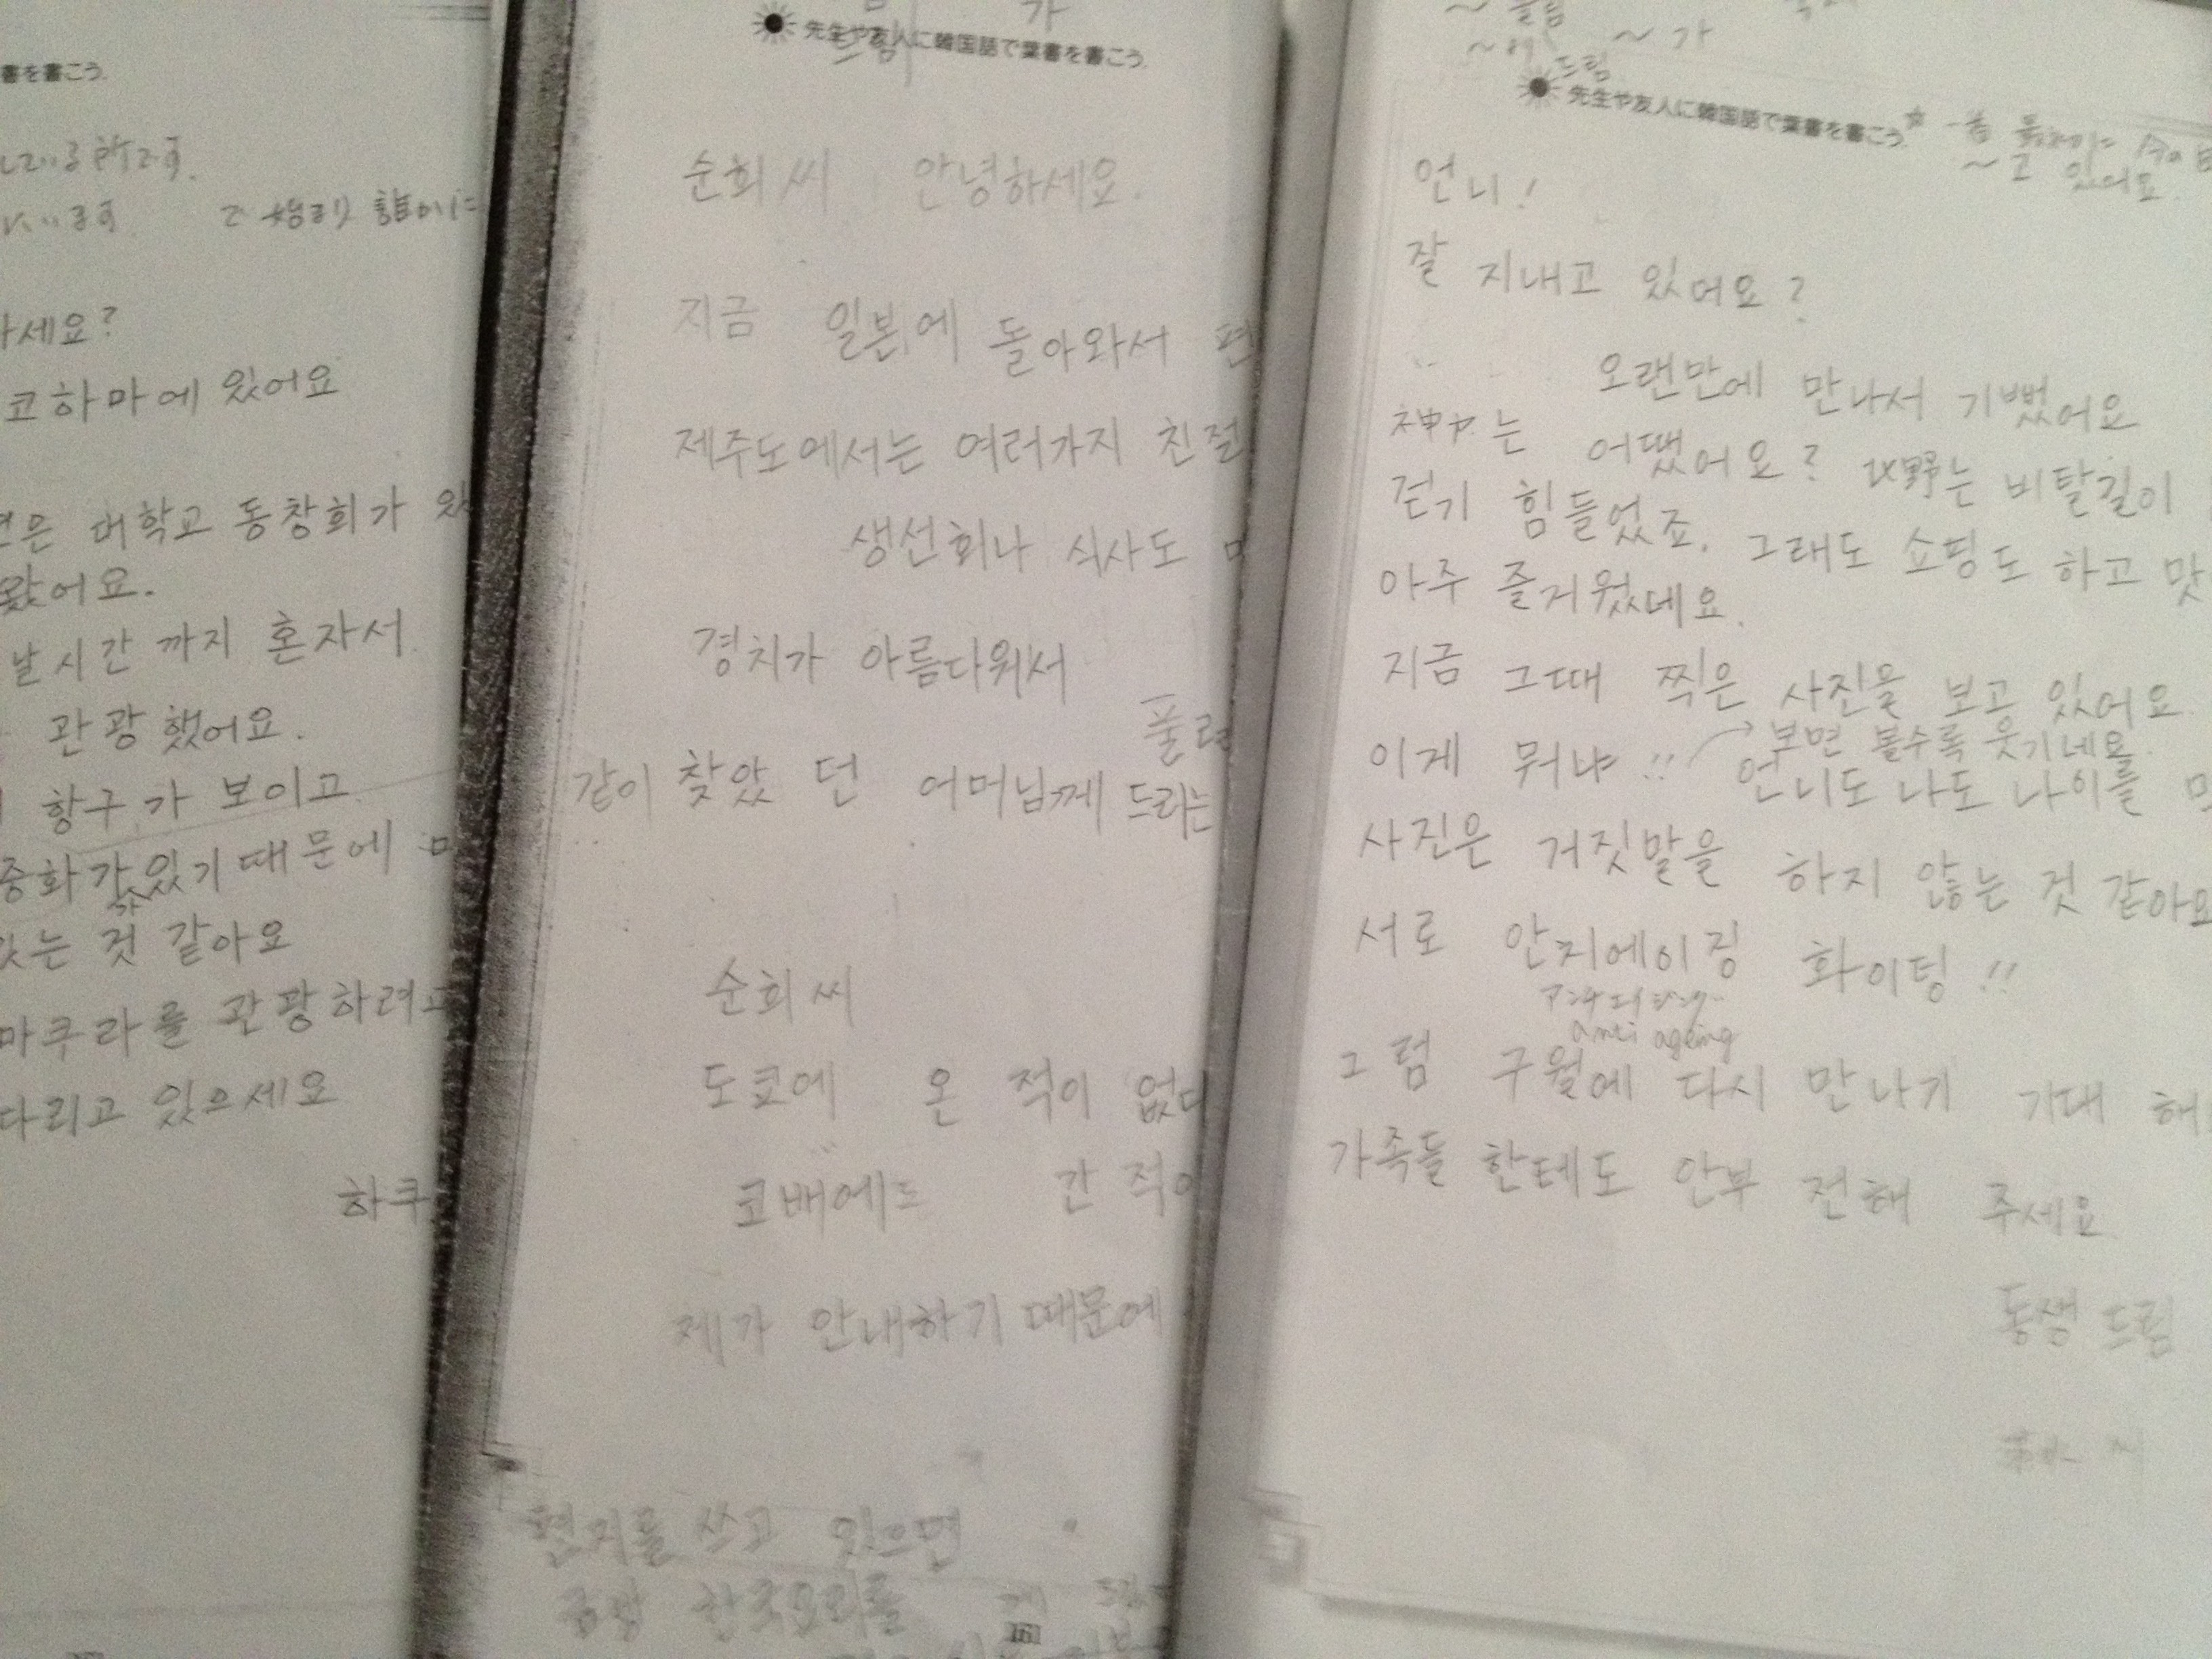 書を書こう.
で始まり 誰かに
하세요?
코하마에 있어요
은 대학교 동창회가
왔어요.
날시간 까지 혼자서
관광했어요.
항구가 보이고
중화가 있기때문에
는 것 같아요
마쿠라를 관광하려고
다리고 있으세요
하쿠
가
드림
先生や友人に韓国語で葉書を書こう.
순희 씨 안녕하세요.
지금 일본에 돌아와서 편
제주도에서는 여러가지 친절
생선회나 식사도
경치가 아름다워서
같이 찾았 던 어머님께 드라는
순희 씨
도쿄에 온 적이 없
코배에도 간 적이
제가 안내하기 때문에
편지를 쓰고 있으면
금방 한국요리를
161
~ 가
드림
先生や友人に韓国語で葉書を書こう.
~ 고 있어요
언니!
잘 지내고 있어요?
오랜만에 만나서 기뻤어요
神戸는 어땠어요? 北野는 비탈길이
걷기 힘들었죠. 그래도 쇼핑도 하고 맛
아주 즐거웠네요.
지금 그때 찍은 사진을 보고 있어요
보면 볼수록 웃기네요.
이게 뭐냐!! 언니도 나도 나이를
사진은 거짓말을 하지 않는 것 같아요
서로 안치에이징 화이팅!!
アンチエイジング
anti ageing
그럼 구월에 다시 만나기 기대 해
가족들 한테도 안부 전해 주세요
동생 드림